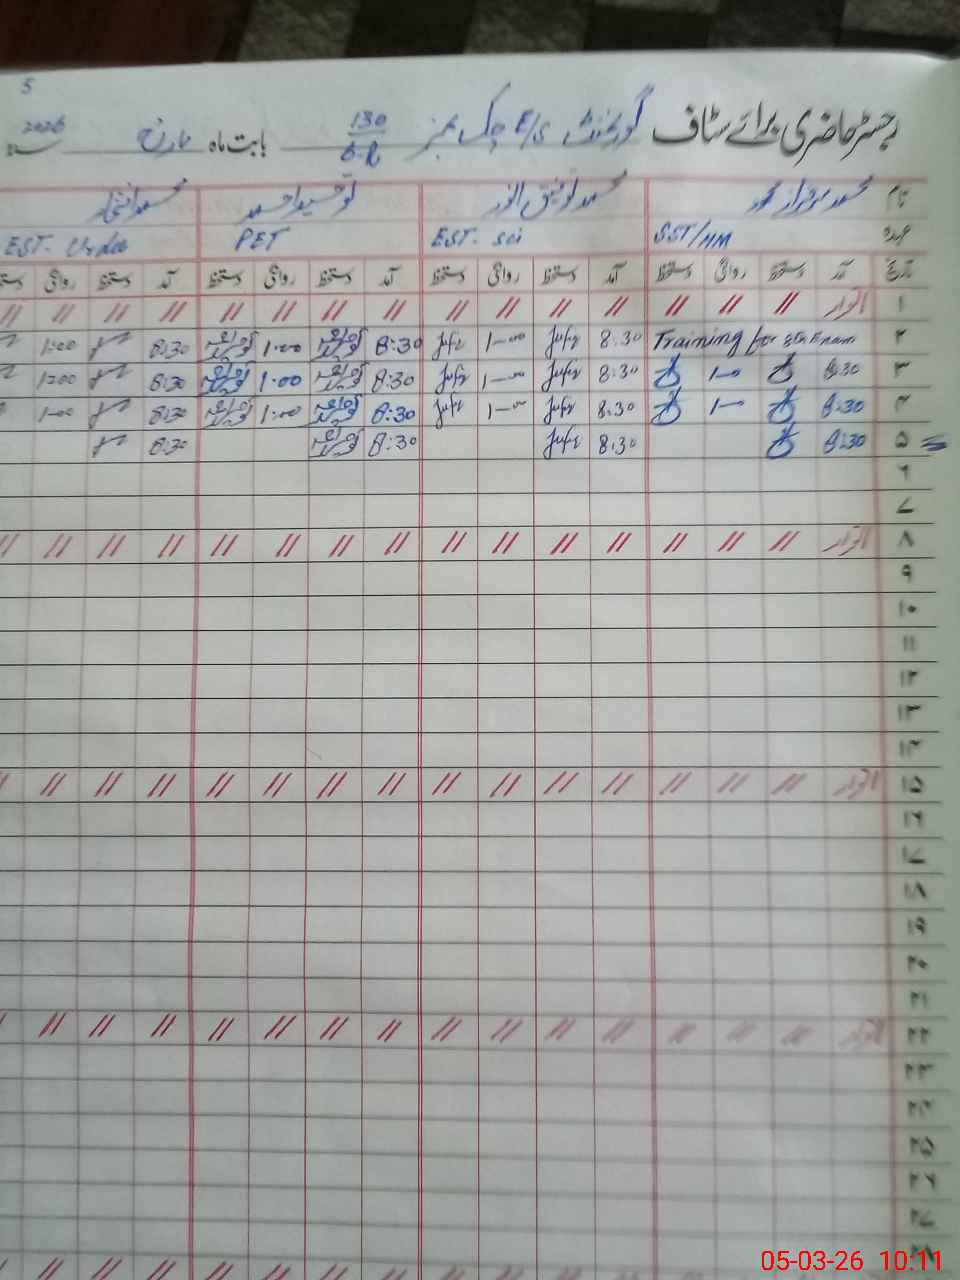 5
رجسٹر حاضری برائے سٹاف گورنمنٹ E/S چک نمبر 130/6-R بابت ماہ مارچ سنہ 2026
نام محمد توفیق انور توحید احمد محمد افتخار
عہدہ SST/HM EST. Sci PET EST. Urdu
تاریخ آمد دستخط روانگی دستخط آمد دستخط روانگی دستخط آمد دستخط روانگی دستخط آمد دستخط روانگی دستخط
۱ اتوار // // // // // // // // // // // // // // //
۲ Training for 8th Exam 8:30 1-00 8:30 1:00 8:30 1:00
۳ 8:30 1-00 8:30 1-00 8:30 1:00 8:30 1:00
۴ 8:30 1-00 8:30 1-00 8:30 1:00 8:30 1-00
۵ 8:30 8:30 8:30 8:30
۶
۷
۸ اتوار // // // // // // // // // // // // // // //
۹
۱۰
۱۱
۱۲
۱۳
۱۴
۱۵ اتوار // // // // // // // // // // // // // //
۱۶
۱۷
۱۸
۱۹
۲۰
۲۱
۲۲ اتوار // // // // // // // // // // // // // // //
۲۳
۲۴
۲۵
۲۶
۲۷
۲۸
05-03-26 10:11